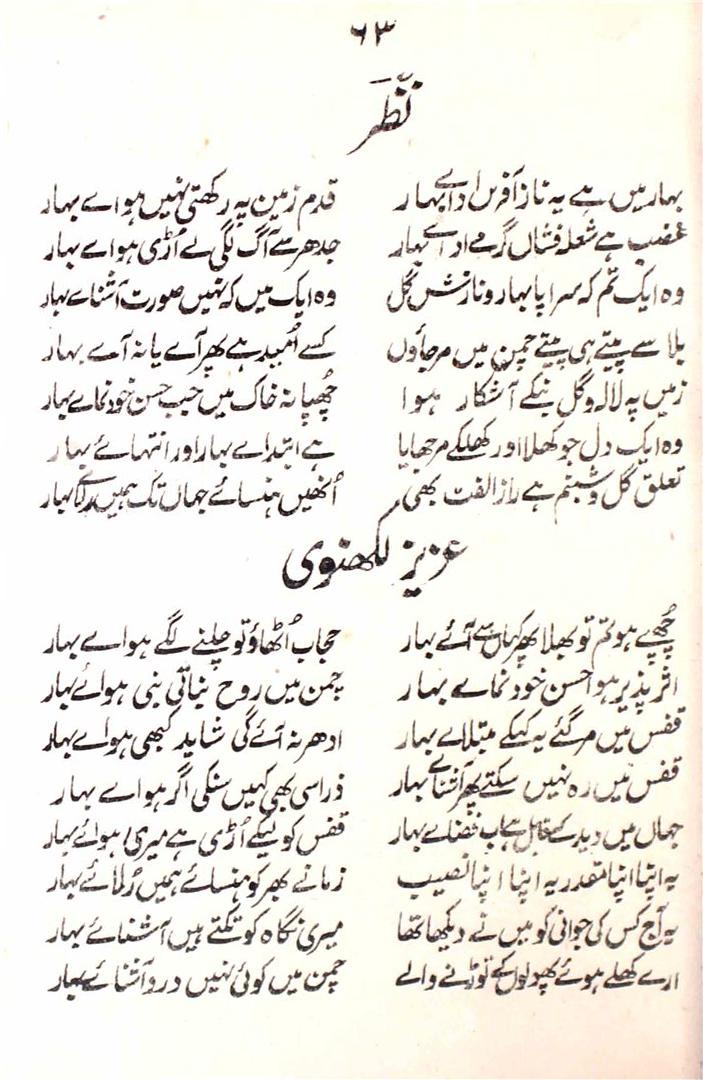 ۶۳
نظر
بہار میں ہے یہ ناز آفریں ادائے بہار قدم زمین پہ رکھتی نہیں ہوائے بہار
غضب ہے شعلہ فشاں گرمے ادائے بہار جدھر سے آگ لگی لے اُڑی ہوائے بہار
وہ ایک تم کہ سراپا بہار و نازش گل وہ ایک میں کہ نہیں صورت آشنائے بہار
بلا سے پیتے ہی پیتے چمن میں مرجاؤں کسے اُمید ہے پھر آے یا نہ آے بہار
زمیں پہ لالہ و گل بنکے آشکار ہوا چُھپا نہ خاک میں جب حسن خود نمائے بہار
وہ ایک دل جو کھلا اور کھلکے مرجھایا ہے ابتدائے بہار اور انتہائے بہار
تعلق گل و شبنم ہے راز الفت بھی اُنھیں ہنسائے جہاں تک ہمیں رلائے بہار
عزیز لکھنوی
چُھپے ہو تم تو بھلا پھر کہاں سے آئے بہار حجاب اُٹھاؤ تو چلنے لگے ہوائے بہار
اثر پذیر ہوا حسن خود نمائے بہار چمن میں روح نباتی بنی ہوائے بہار
قفس میں مرگئے یہ کہکے مبتلائے بہار ادھر نہ آئے گی شاید کبھی ہوائے بہار
قفس میں رہ نہیں سکتے پھر آشنائے بہار ذرا سی بھی کہیں سنکی اگر ہوائے بہار
جہاں میں دید کے قابل ہے اب فضائے بہار قفس کو لیکے اُڑی ہے میری ہوائے بہار
یہ اپنا اپنا مقدر یہ اپنا اپنا نصیب زمانے بھر کو ہنسائے ہمیں رُلائے بہار
یہ آج کس کی جوانی کو میں نے دیکھا تھا میری نگاہ کو تکتے ہیں آشنائے بہار
ارے کھلے ہوئے پھولوں کے توڑنے والے چمن میں کوئی نہیں درد آشنائے بہار